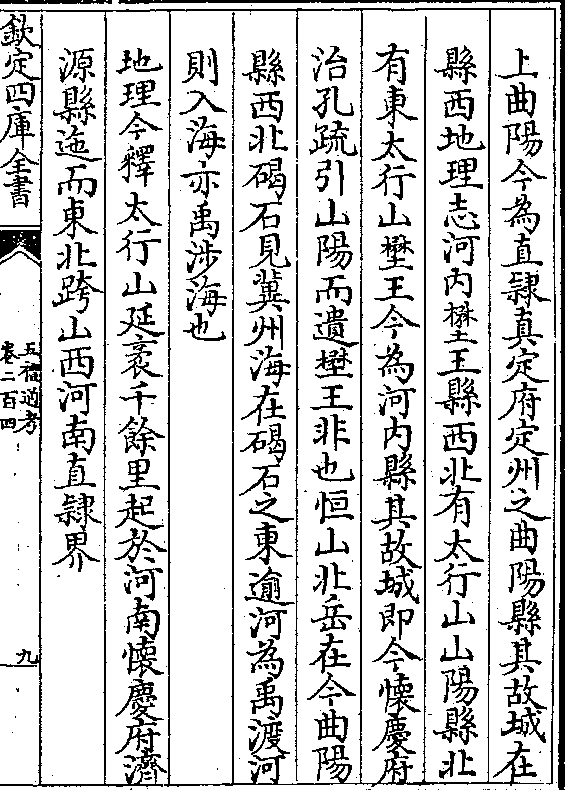 上曲陽今為直隸真定府定州之曲陽縣其故城在
縣西地理志河内壄王縣西北有太行山山陽縣北
有東太行山壄王今為河内縣其故城即今懷慶府
治孔疏引山陽而遺壄王非也恒山北岳在今曲陽
縣西北碣石見冀州海在碣石之東逾河為禹渡河
則入海亦禹涉海也
地理今釋太行山延袤千餘里起於河南懷慶府濟
源縣迤而東北跨山西河南直隸界
欽定四庫全書
五禮通考
卷二百四
九